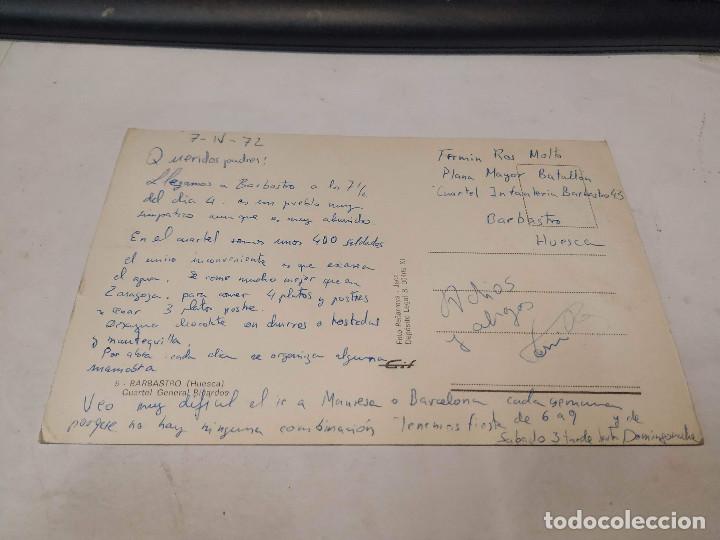 7-IV-72
Queridos padres!
Llegamos a Barbastro a las 7 1/2
del dia 4. es un pueblo muy
simpatico aunque es muy aburrido.
En el cuartel somos unos 400 soldados
el unico inconveniente es que escasea
el agua. Se come mucho mejor que en
Zaragoza. para comer 4 platos y postres
y cenar 3 platos postre.
chocolate con churros o tostadas
y mantequilla.
Por ahora cada dia se organiza alguna
5 - BARBASTRO (Huesca)
Cuartel General Ricardos
Veo muy dificil el ir a Manresa o Barcelona cada semana
porque no hay ninguna combinación Tenemos fiesta de 6 a 9 y de
Sabado 3 tarde hasta Domingo noche
Foto Peñarroya - Jaca
Depósito Legal B.
Fermin Ros Molto
Plana Mayor Batallón
Cuartel Infanteria Barbastro 43
Barbastro
Huesca
Adios
y abrazos
todocoleccion.net